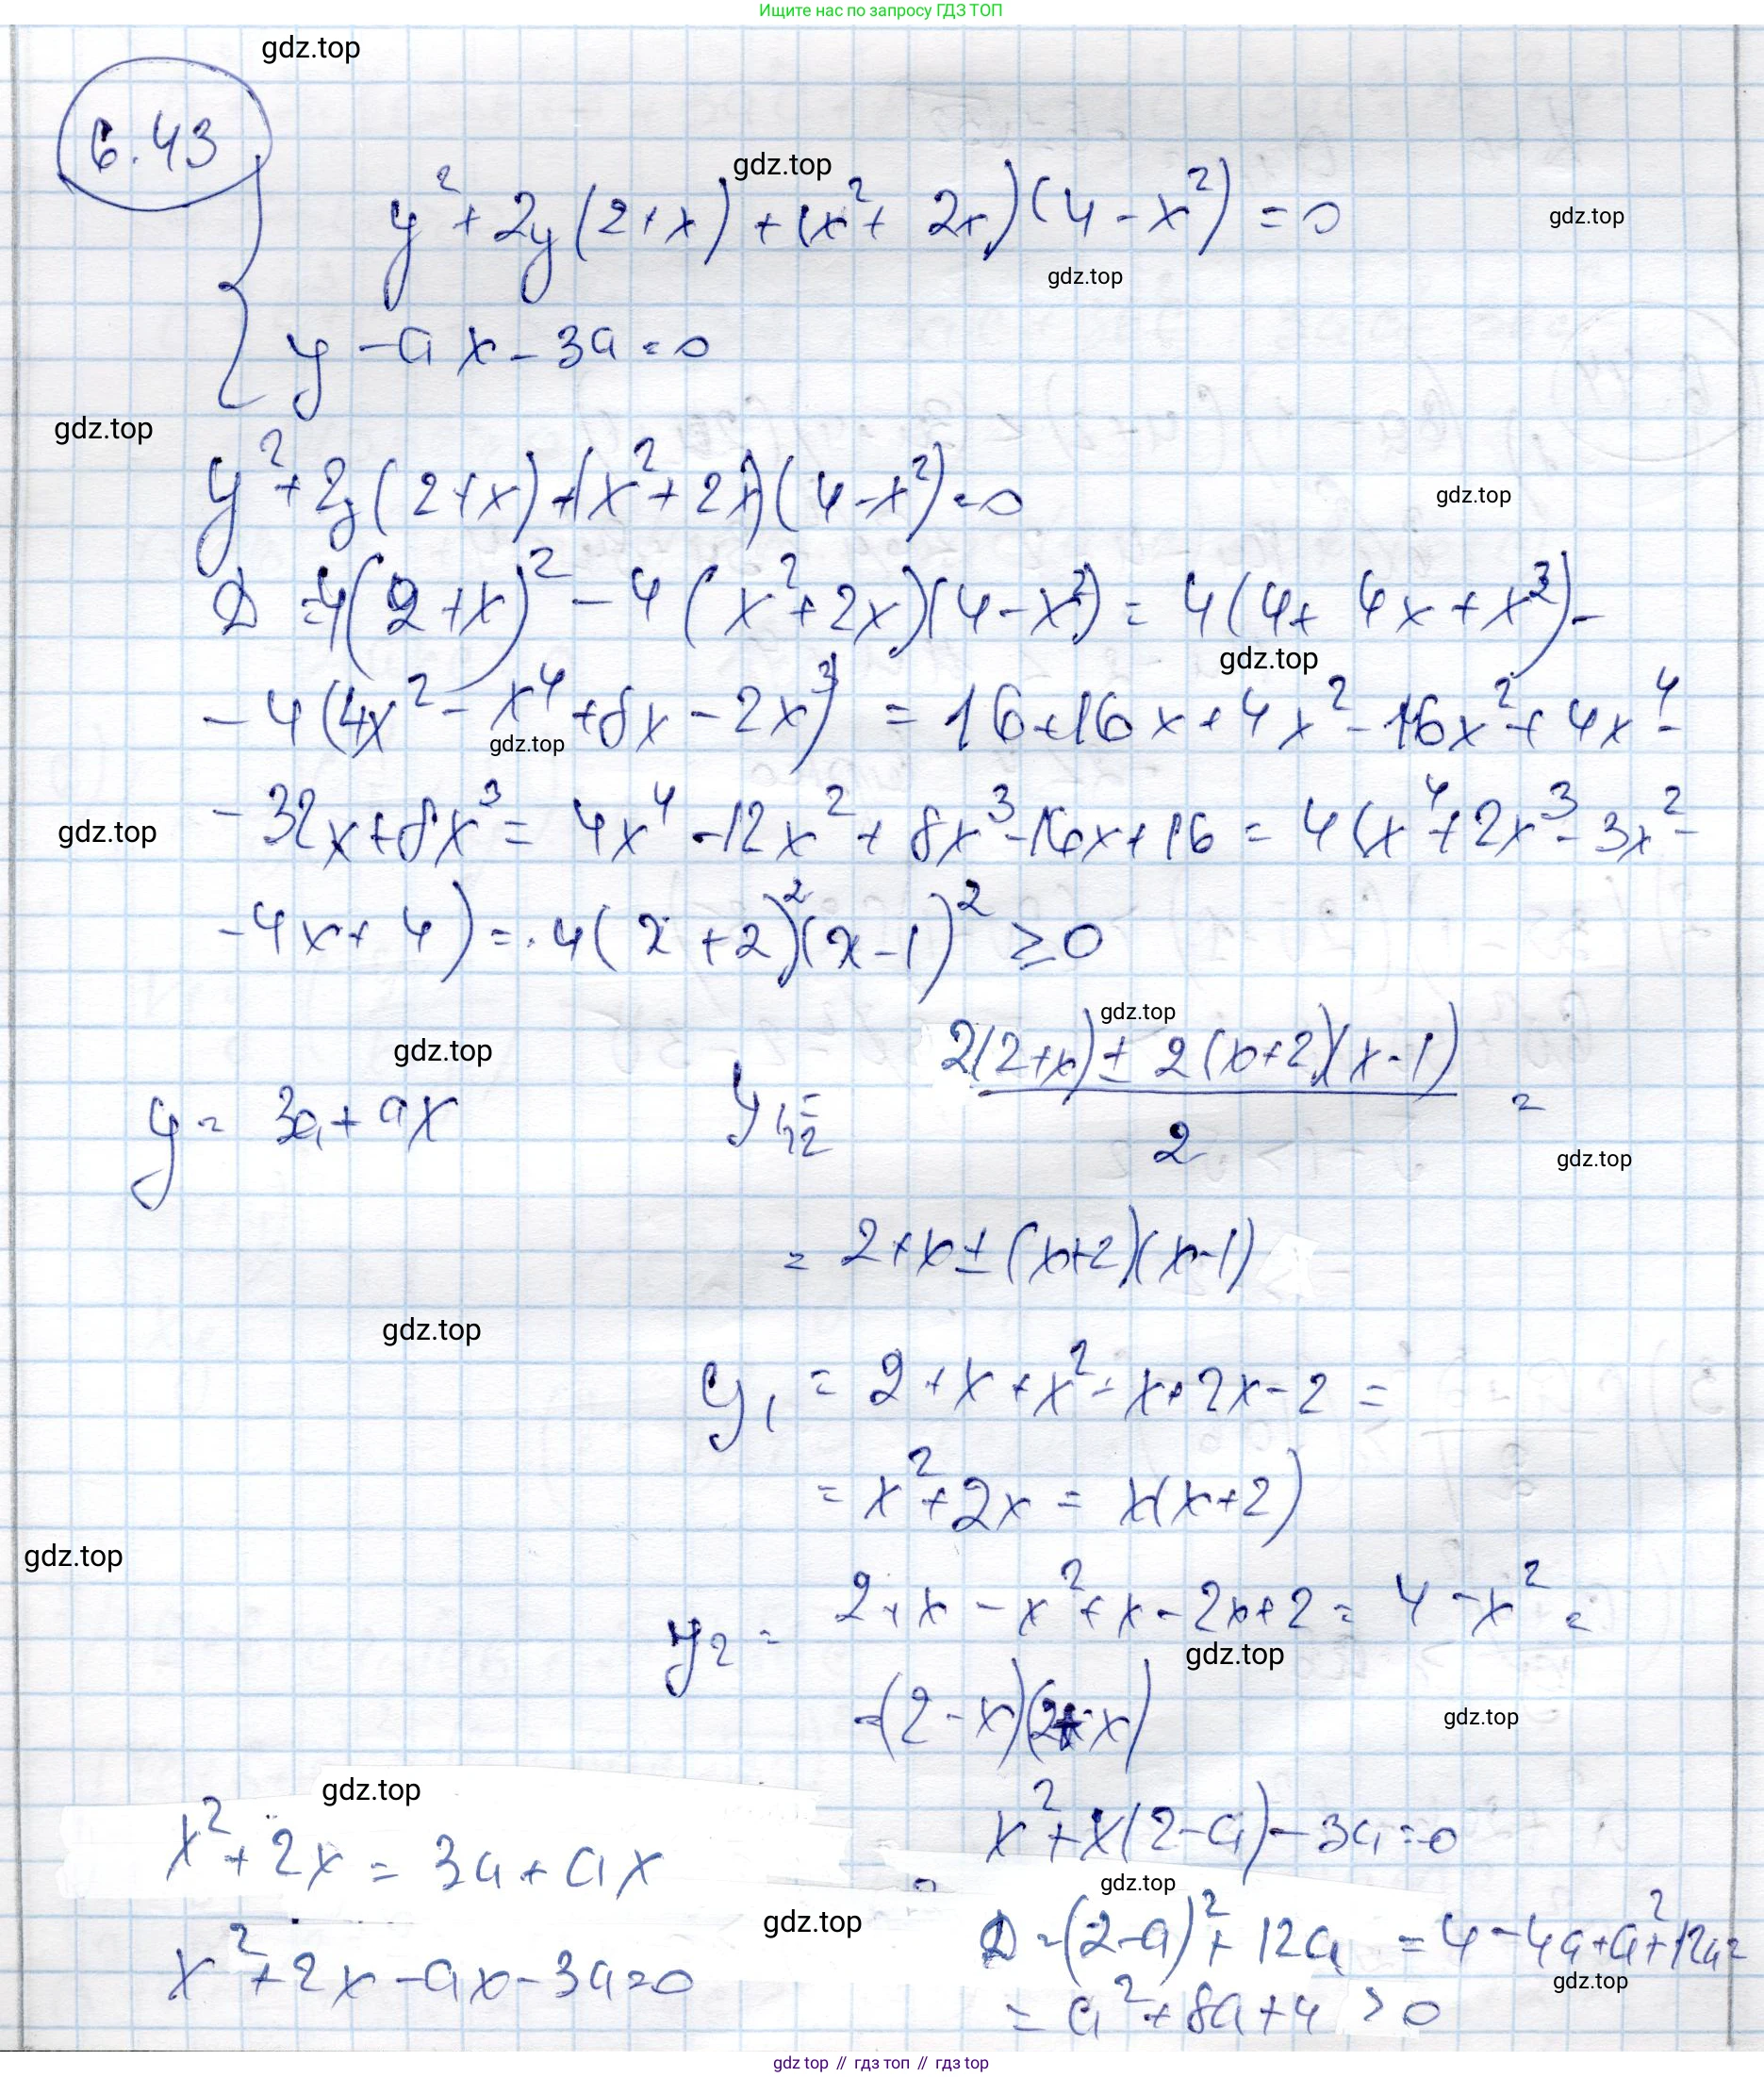 Ищите нас по запросу ГДЗ ТОП
gdz.top
6.43
gdz.top
y² + 2y(2+x) + (x² + 2x)(4 - x²) = 0
gdz.top
gdz.top
y - ax - 3a = 0
gdz.top
y² + 2y(2+x) + (x² + 2x)(4 - x²) = 0
gdz.top
D = 4(2+x)² - 4(x² + 2x)(4 - x²) = 4(4 + 4x + x²) -
gdz.top
- 4(4x² - x⁴ + 8x - 2x³) = 16 + 16x + 4x² - 16x² + 4x⁴ -
gdz.top
- 32x + 8x³ = 4x⁴ - 12x² + 8x³ - 16x + 16 = 4(x⁴ + 2x³ - 3x² -
gdz.top
- 4x + 4) = 4(x + 2)²(x - 1)² ≥ 0
gdz.top
gdz.top
y = 3a + ax
y₁,₂ = 2(2+x) ± 2(x+2)(x-1) / 2 =
gdz.top
= 2 + x ± (x+2)(x-1)
gdz.top
y₁ = 2 + x + x² - x + 2x - 2 =
= x² + 2x = x(x+2)
gdz.top
y₂ = 2 + x - x² + x - 2x + 2 = 4 - x² =
gdz.top
= (2 - x)(2 + x)
gdz.top
gdz.top
x² + 2x = 3a + ax
x² + x(2 - a) - 3a = 0
gdz.top
gdz.top
x² + 2x - ax - 3a = 0
D = (2-a)² + 12a = 4 - 4a + a² + 12a =
gdz.top
= a² + 8a + 4 > 0
gdz top // гдз топ // гдз top